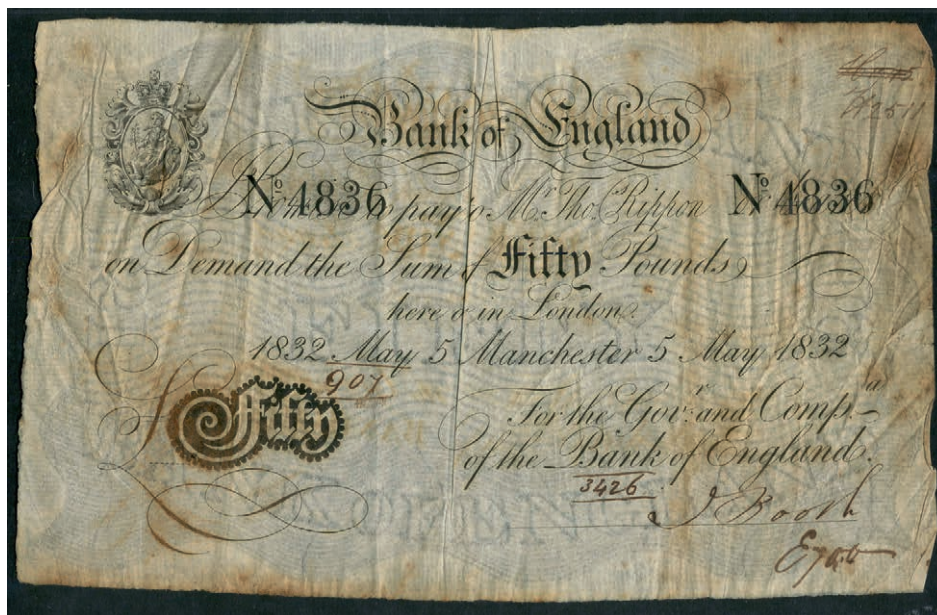 Bank of England
Nº 4836 pay to Mr. Tho. Rippon Nº 4836
on Demand the Sum of Fifty Pounds
here or in London
1832 May 5 Manchester 5 May 1832
907
For the Govr. and Compa.
Fifty
of the Bank of England.
3426
J Booth